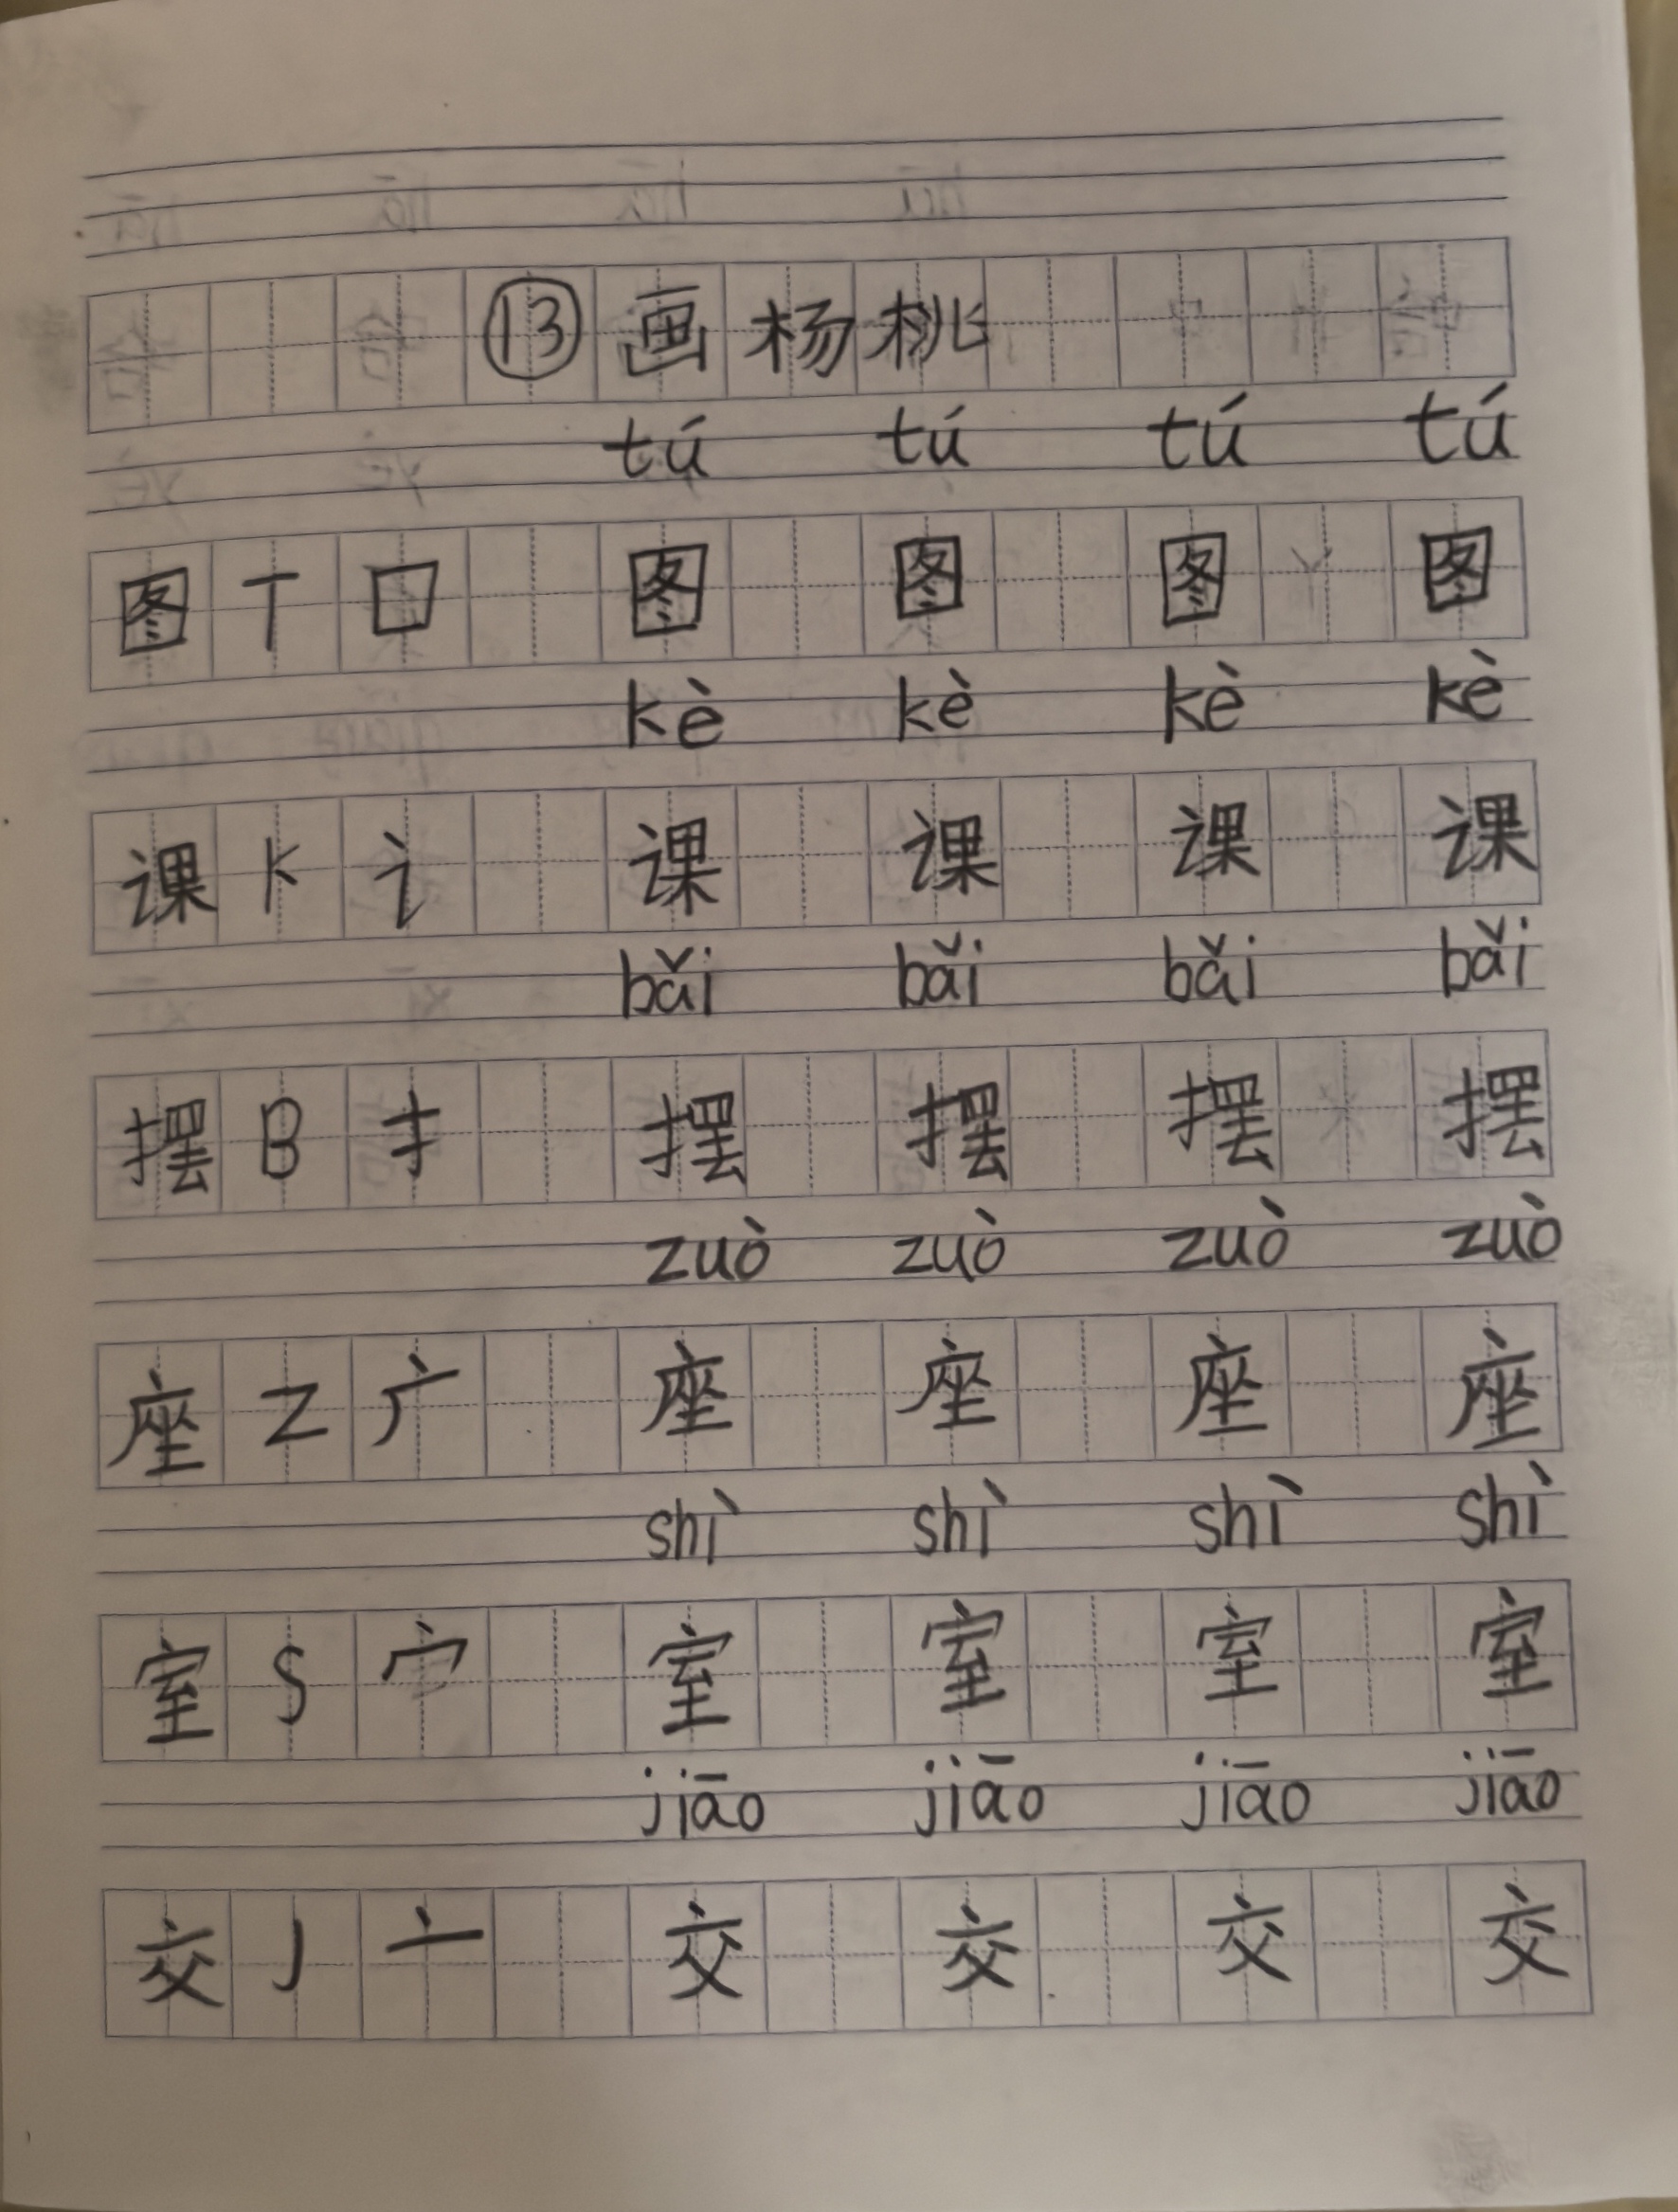 ⑬ 画杨桃
tú tú tú tú
图 T 囗 图 图 图 图
kè kè kè kè
课 K 讠 课 课 课 课
bǎi bǎi bǎi bǎi
摆 B 扌 摆 摆 摆 摆
zuò zuò zuò zuò
座 Z 广 座 座 座 座
shì shì shì shì
室 S 宀 室 室 室 室
jiāo jiāo jiāo jiāo
交 J 亠 交 交 交 交